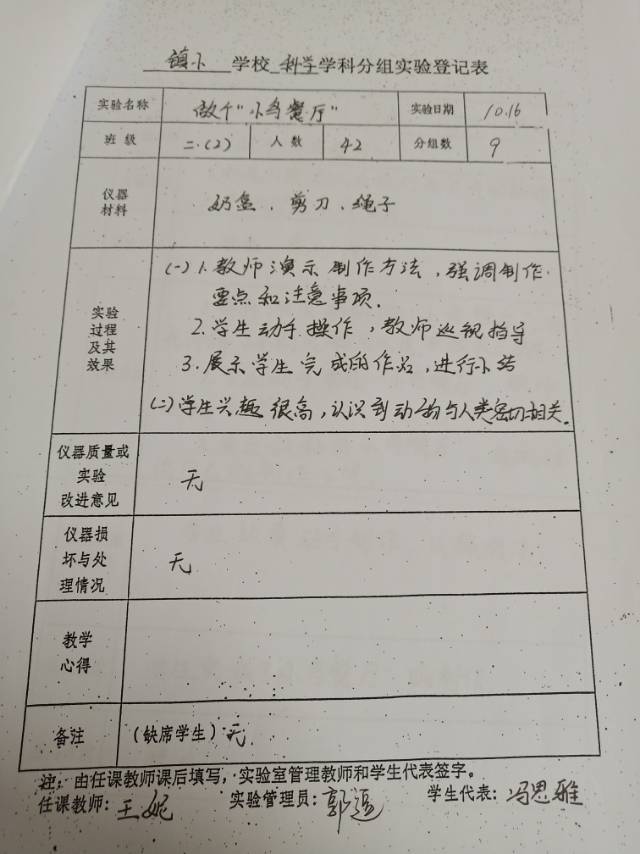 镇小 学校 科学 学科分组实验登记表
实验名称 做个"小鸟餐厅" 实验日期 10.16
班 级 二.(2) 人 数 42 分组数 9
仪器
材料
奶盒、剪刀、绳子
实验
过程
及其
效果
(一) 1. 教师演示制作方法，强调制作
要点和注意事项.
2. 学生动手操作，教师巡视指导
3. 展示学生完成的作品，进行小结
(二) 学生兴趣很高，认识到动物与人类密切相关.
仪器质量或
实验
改进意见
无
仪器损
坏与处
理情况
无
教学
心得
备注 (缺席学生) 无
注：由任课教师课后填写，实验室管理教师和学生代表签字。
任课教师：王妮 实验管理员：郭 学生代表：冯思雅